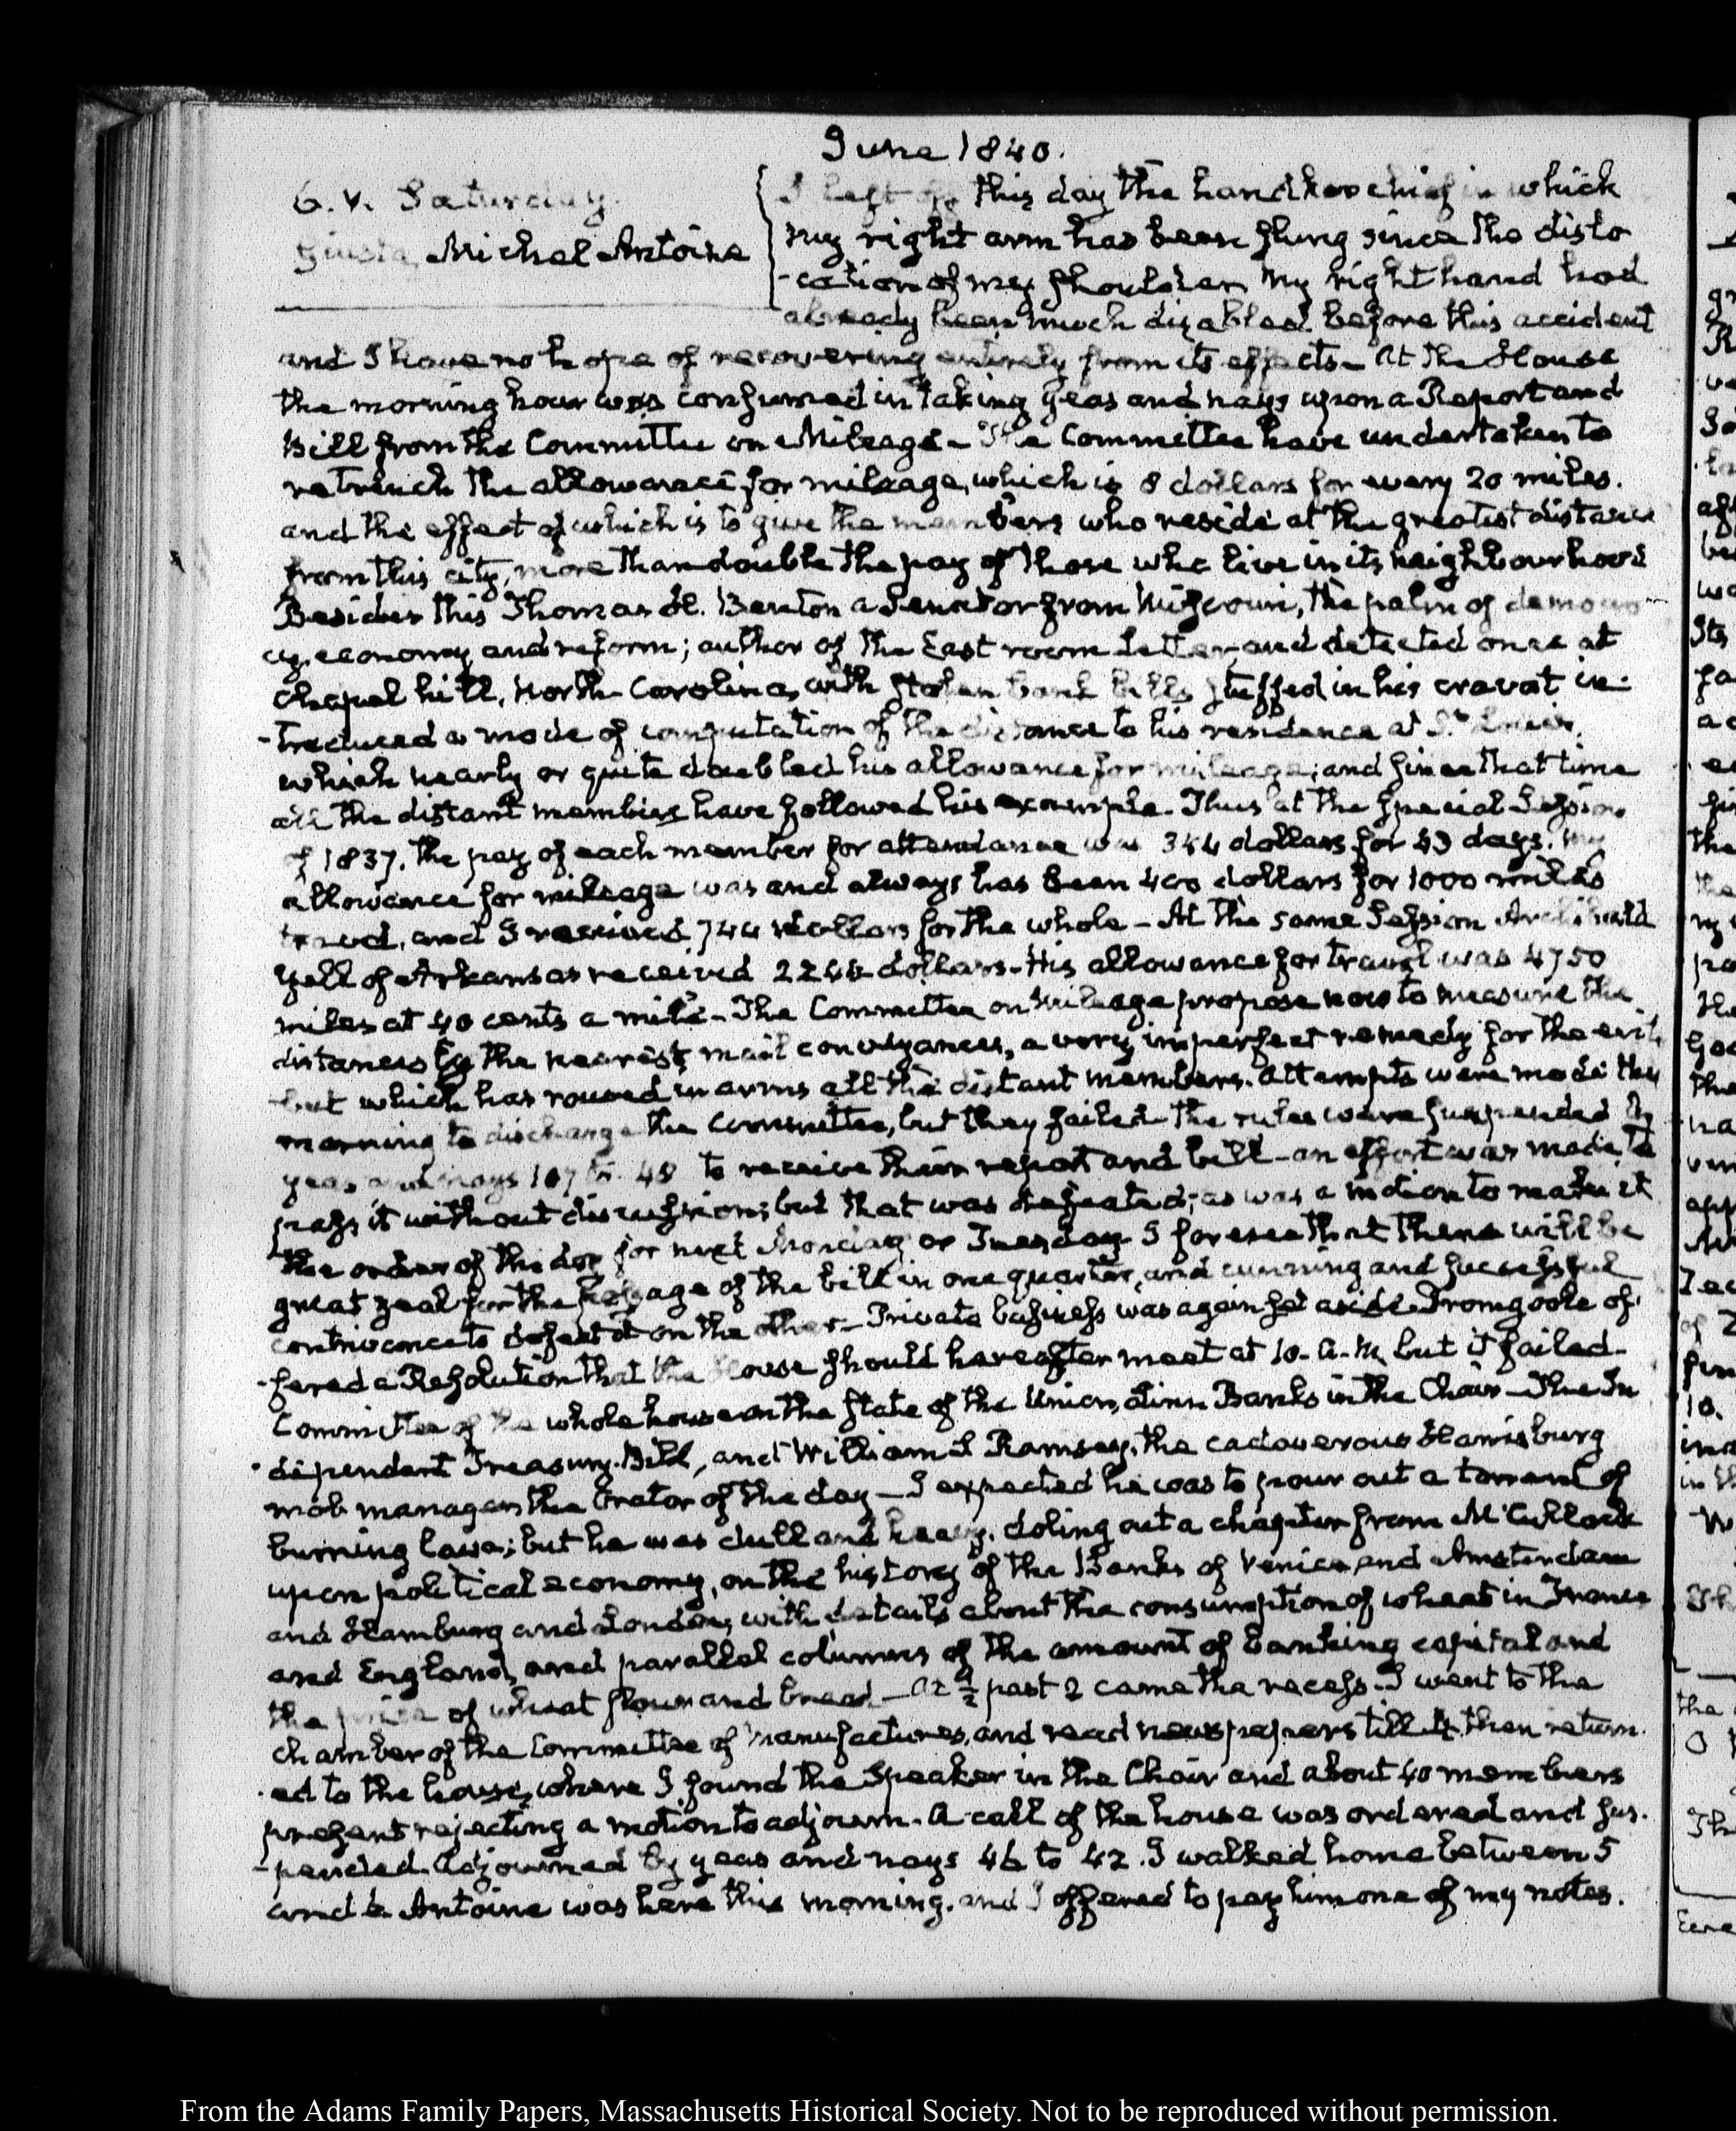 June 1840.
6. V. Saturday.
Giusta, Michel Antoine
I left off this day the handkerchief in which
my right arm has been slung since the dislo
-cation of my shoulder. My right hand had
already been much disabled before this accident
and I have no hope of recovering entirely from its effects– At the House
the morning hour was consumed in taking yeas and nays upon a Report and
Bill from the Committee on Mileage– The Committee have undertaken to
retrench the allowance for mileage, which is 8 dollars for every 20 miles.
and the effect of which is to give the members who reside at the greatest distance
from this city, more than double the pay of those who live in its neighbourhood
Besides this Thomas H. Benton a Senator from Missouri, the palm of democra-
cy, economy and reform; author of the East room Letter, and detected once at
Chapel hill, North-Carolina, with stolen bank bills stuffed in his cravat in-
-troduced a mode of computation of the distance to his residence at St. Louis,
which nearly or quite doubled his allowance for mileage; and since that time
all the distant members have followed his example. Thus at the special Session
of 1837. the pay of each member for attendance was 344 dollars for 43 days. my
allowance for mileage was and always has been 400 dollars for 1000 miles
travel, and I received 744 dollars for the whole– At the same Session Archibald
Yell of Arkansas received 2244 dollars. His allowance for travel was 4750
miles at 40 cents a mile– The Committee on Mileage propose now to measure the
distances by the nearest mail conveyances, a very imperfect remedy for the evil,
but which has roused in arms all the distant members. Attempts were made this
morning to discharge the Committee, but they failed– the rules were suspended by
yeas and nays 107 to 48 to receive their report and bill– an effort was made to
pass it without discussion; but that was defeated; as was a motion to make it
the order of the day for next Monday or Tuesday– I foresee that there will be
great zeal for the passage of the bill in one quarter, and cunning and successful
contrivance to defeat it on the other– Private business was again set aside. Dromgoole of-
-fered a Resolution that the House should hereafter meet at 10. A.M. but it failed–
Committee of the whole house on the state of the Union, Linn Banks in the Chair– The In
-dependent Treasury. Bill, and William S Ramsey, the cadaverous Harrisburg
mob manager the Orator of the day– I expected he was to pour out a torrent of
burning lava; but he was dull and heavy, doling out a chapter from McCulloch
upon political economy, on the history of the Banks of Venice and Amsterdam
and Hamburg and London, with details about the consumption of wheat in France
and England, and parallel columns of the amount of banking capital and
the price of wheat flour and bread– At ½ past 2 came the recess. I went to the
chamber of the Committee of Manufactures, and read newspapers till 4. then return-
-ed to the house, where I found the Speaker in the Chair and about 40 members
present rejecting a motion to adjourn. A call of the house was ordered and sus-
-pended. Adjourned by yeas and nays 46 to 42. I walked home between 5
and 6. Antoine was here this morning. and I offered to pay him one of my notes.
From the Adams Family Papers, Massachusetts Historical Society. Not to be reproduced without permission.